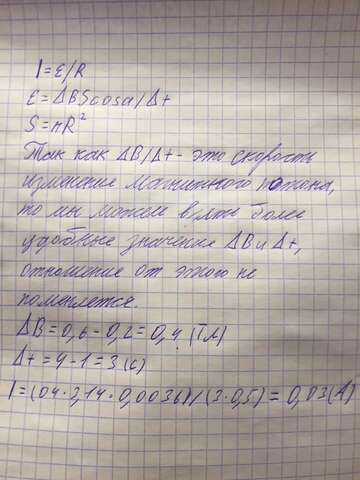 I=ε/R
ε=ΔBScosa/Δt
S=πR²
Так как ΔB/Δt - это скорость
изменение магнитного потока,
то мы можем взять более
удобные значение ΔB и Δt,
отношение от этого не
поменяется.
ΔB=0,6-0,2=0,4 (Тл)
Δt=4-1=3(с)
I=(04·3,14·0,0036)/(3·0,5)=0,03(А)